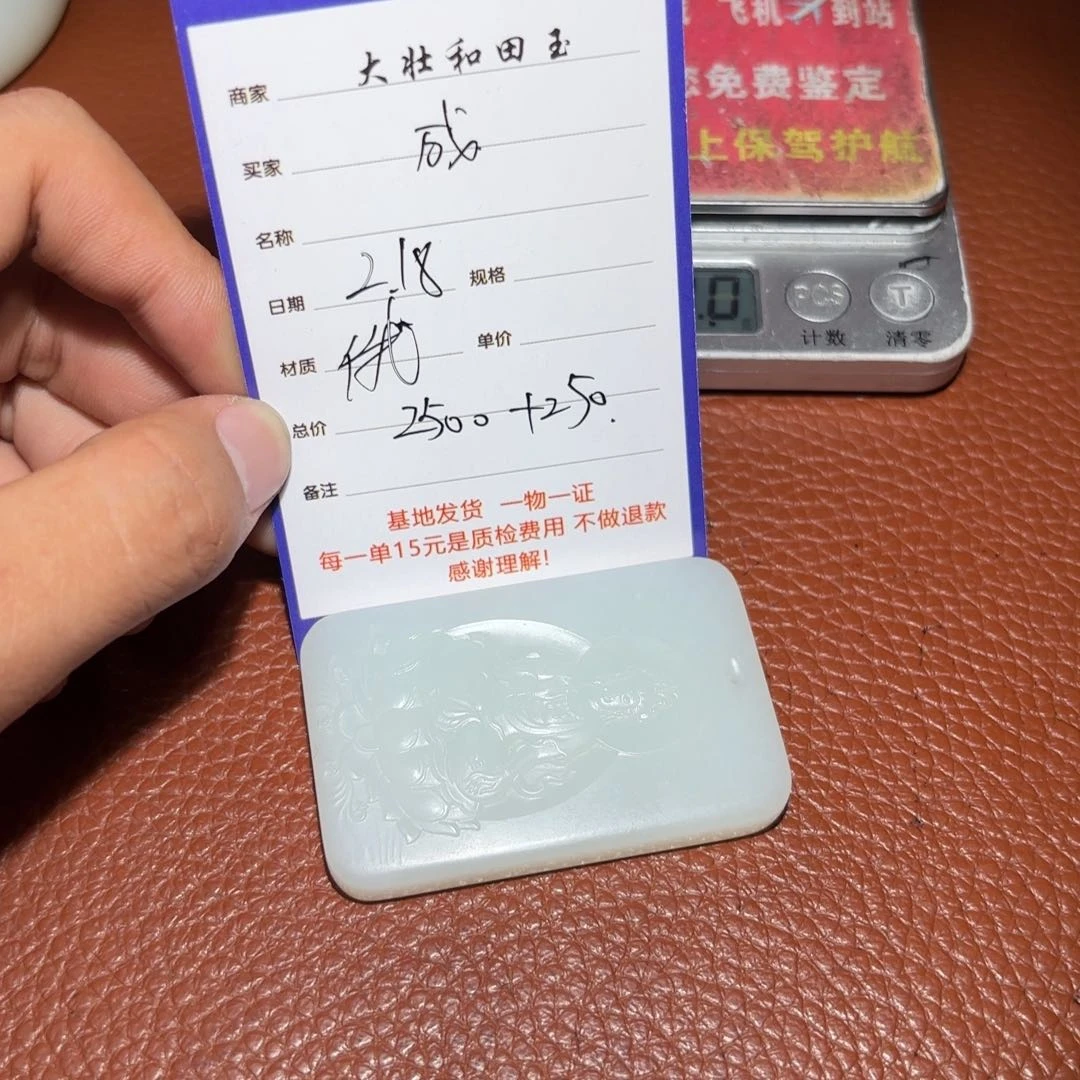 商家 大壮和田玉
买家 成
名称
日期 2.18 规格
材质 单价
总价 2500+250.
备注
基地发货 一物一证
每一单15元是质检费用 不做退款
感谢理解!
飞机 到站
免费鉴定
上保驾护航
.0
PCS T
计数 清零